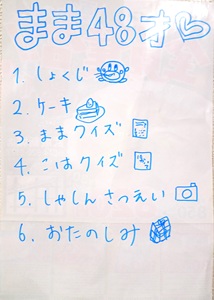 まま48才
1. しょくじ
2. ケーキ
3. ままクイズ
4. こはクイズ
5. しゃしんさつえい
6. おたのしみ